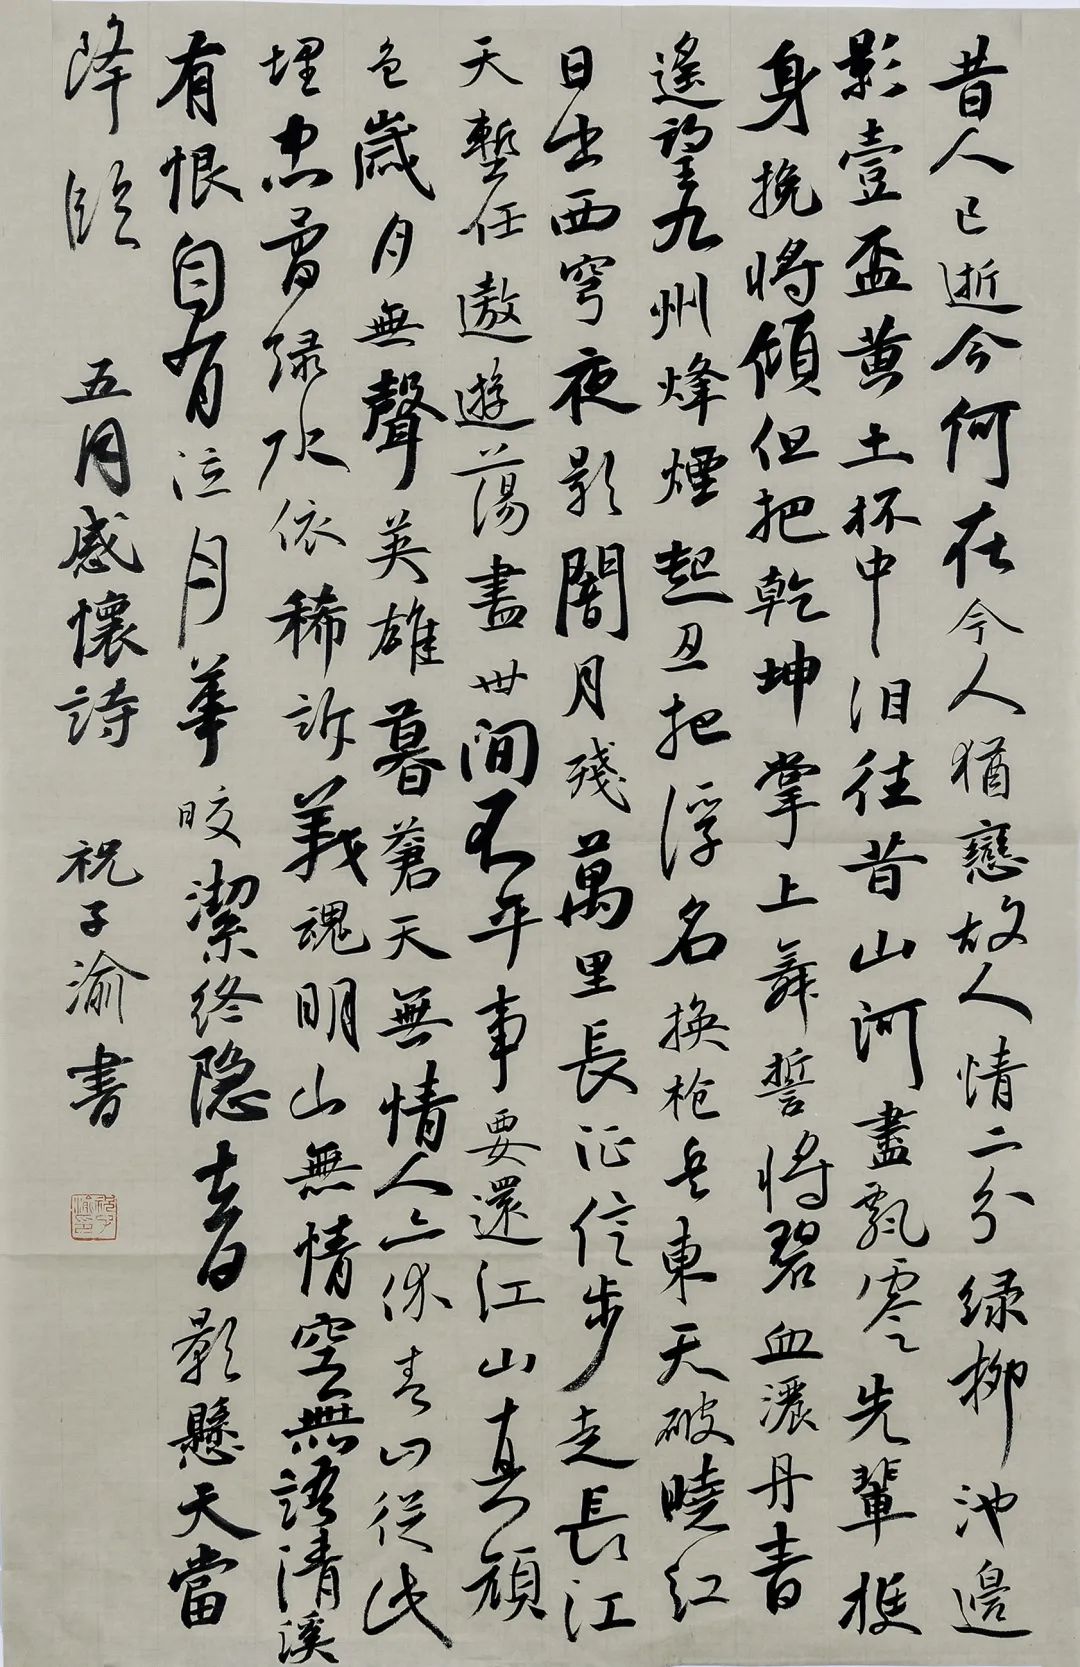 昔人已逝今何在今人猶戀故人情二分緑柳池邊
影壹盃黄土杯中泪往昔山河盡飄零先輩推
身挽將傾但把乾坤掌上舞誓將碧血濃丹青
遙望九州烽煙起忍把浮名換枪兵東天破曉紅
日出西穹夜影闇月殘萬里長征信步走長江
天塹任遨遊蕩盡世間不年事要還江山真顔
色歲月無聲英雄暮蒼天無情人亦休青山從此
埋忠骨緑水依稀訴義魂明山無情空無語清溪
有恨自有泣月華皎潔終隐去日影懸天當
降臨
五月感懷詩
祝子渝書